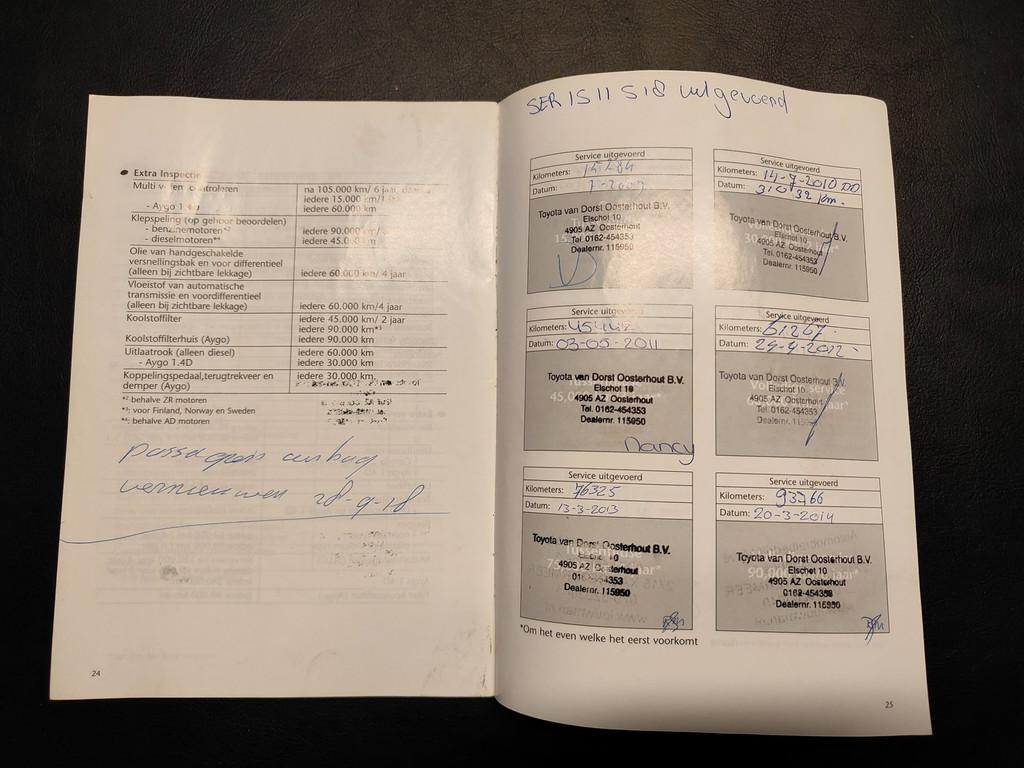 Extra Inspectie
controleren na 105.000 km/ 6 jaar,
iedere 15.000 km/
- Aygo iedere 60.000 km
Klepspeling (op gehoor beoordelen)
- benzinemotoren*² iedere 90.000 km/
- dieselmotoren** iedere 45.000 km
Olie van handgeschakelde
versnellingsbak en voor differentieel
(alleen bij zichtbare lekkage) iedere 60.000 km/ 4 jaar
Vloeistof van automatische
transmissie en voordifferentieel
(alleen bij zichtbare lekkage) iedere 60.000 km/4 jaar
Koolstoffilter iedere 45.000 km/ 2 jaar
iedere 90.000 km*³
Koolstoffilterhuis (Aygo) iedere 90.000 km
Uitlaatrook (alleen diesel) iedere 60.000 km
- Aygo 1.4D iedere 30.000 km
Koppelingspedaal,terugtrekveer en iedere 30.000 km,
demper (Aygo)
*² behalve ZR motoren
*³: voor Finland, Norway en Sweden
behalve AD motoren
vernieuwen
24
uitgevoerd
Service uitgevoerd
Kilometers:
Datum:
Toyota van Dorst Oosterhout B.V.
Elschot 10
4905 AZ Oosterhout
Tel. 0162-454353
Dealernr. 115950
Service uitgevoerd
Kilometers: 14-7-2010
Datum: km.
Toyota van Dorst Oosterhout B.V.
Elschot 10
4905 AZ Oosterhout
Tel. 0162-454353
Dealernr. 115950
Service uitgevoerd
Kilometers: 45442
Datum: 03-05-2011
Toyota van Dorst Oosterhout B.V.
Elschot 10
4905 AZ Oosterhout
Tel. 0162-454353
Dealernr. 115950
Nancy
Service uitgevoerd
Kilometers: 61267
Datum: 24-4-2012
Toyota van Dorst Oosterhout B.V.
Elschot 10
4905 AZ Oosterhout
Tel. 0162-454353
Dealernr. 115950
Service uitgevoerd
Kilometers: 76325
Datum: 13-3-2013
Toyota van Dorst Oosterhout B.V.
4905 AZ Oosterhout
Dealernr. 115950
Service uitgevoerd
Kilometers: 93766
Datum: 20-3-2014
Toyota van Dorst Oosterhout B.V.
Elschot 10
4905 AZ Oosterhout
Dealernr. 115950
*Om het even welke het eerst voorkomt
25